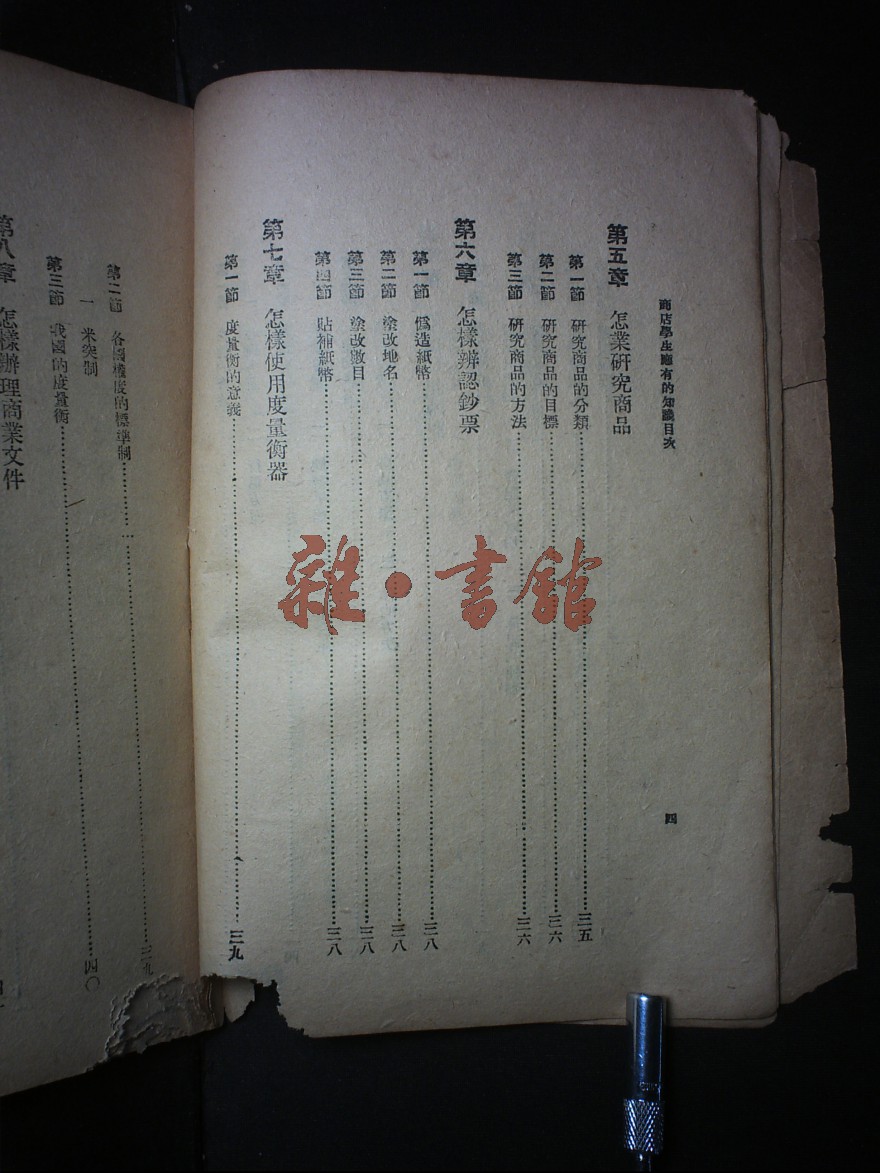 商店學生應有的知識目次
四
第五章 怎業研究商品
第一節 研究商品的分類……三五
第二節 研究商品的目標……三六
第三節 研究商品的方法……三六
第六章 怎樣辨認鈔票
第一節 僞造紙幣……三八
第二節 塗改地名……三八
第三節 塗改數目……三八
第四節 貼補紙幣……三八
第七章 怎樣使用度量衡器
第一節 度量衡的意義……三九
第二節 各國權度的標準制……三九
一 米突制
第三節 我國的度量衡……四〇
第八章 怎樣辦理商業文件
雜·書館